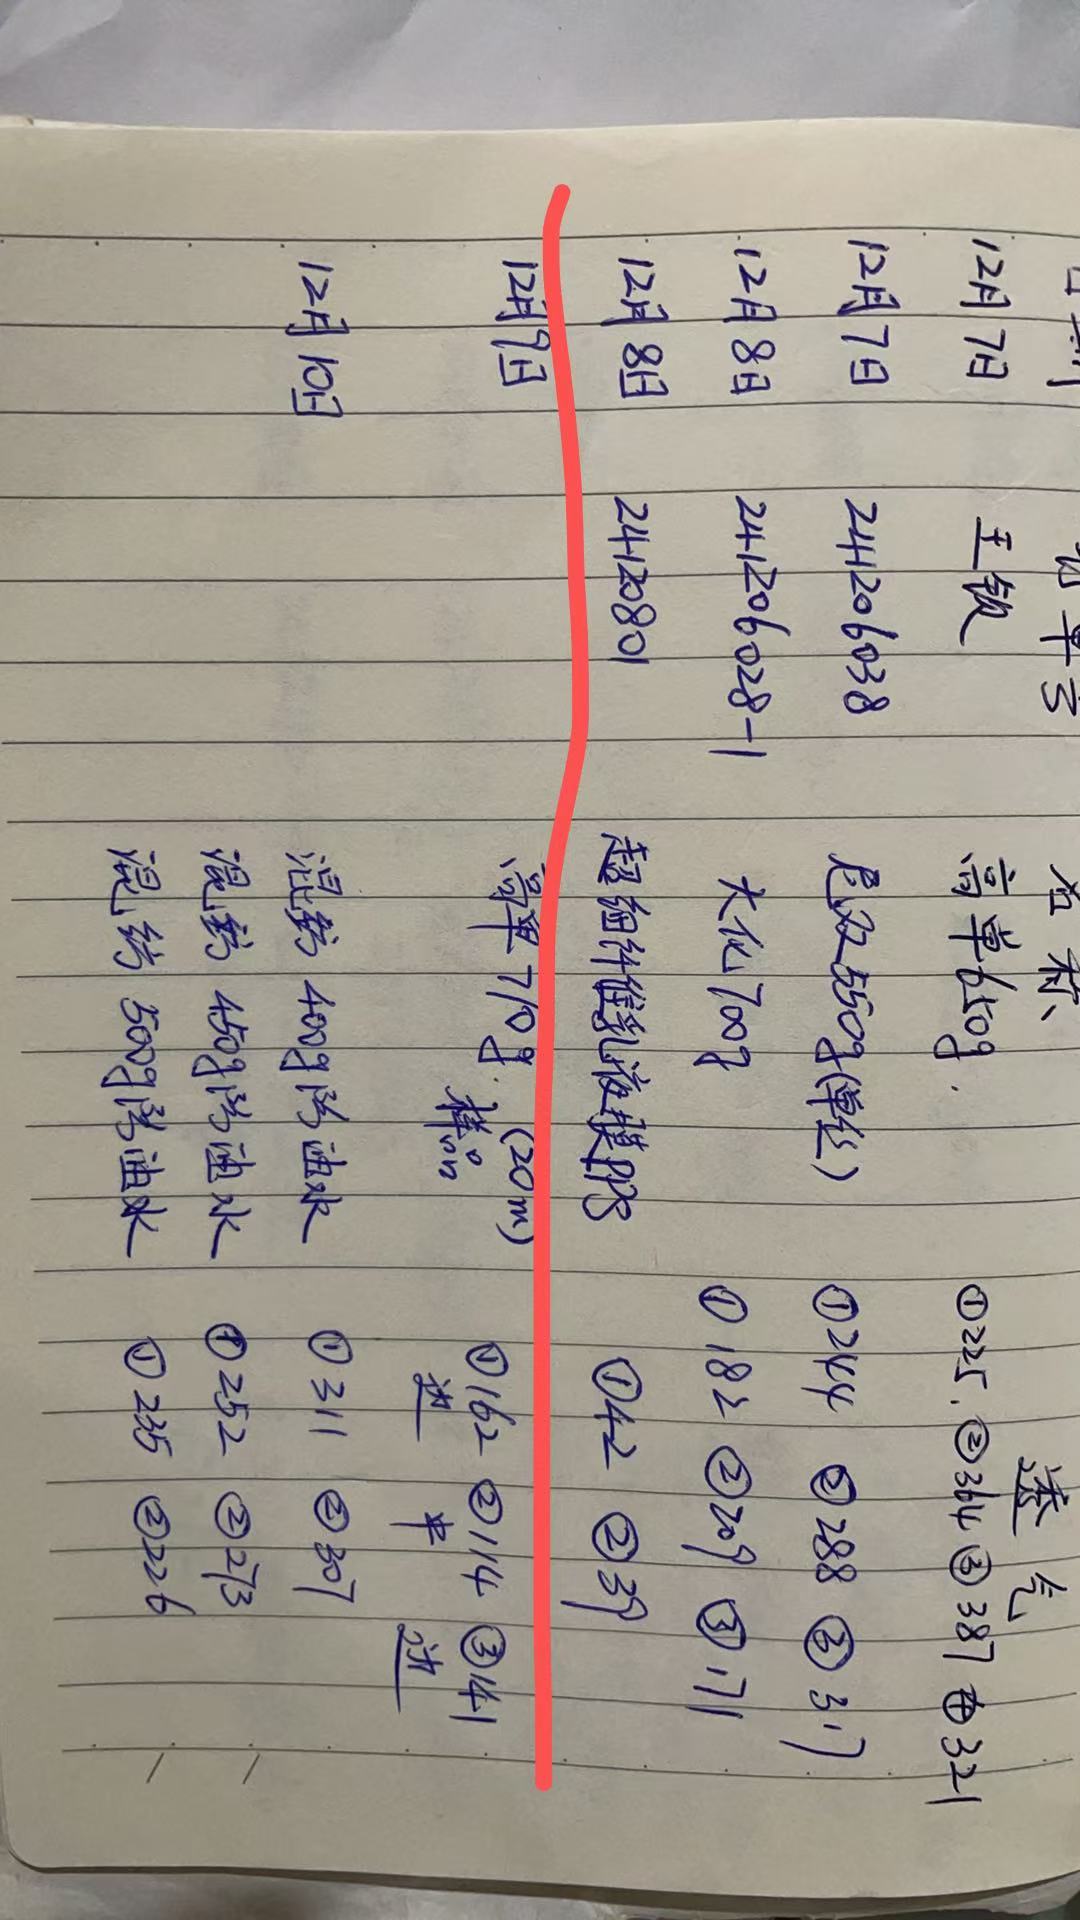 名称 透气
12月7日 王钦 高单650g. ①225. ②364 ③387 ④321
12月7日 241206038 总双550g(单丝) ①244 ②288 ③317
12月8日 241206028-1 大化700g ①182 ②209 ③171
12月8日 24120801 超细纤维乳液膜PPS ①42 ②39
12月9日 高单710g. (20m) ①162 ②114 ③141
样品 进 中 进
12月10日 混纺 400g防油水 ①311 ②307
混纺 450g防油水 ①252 ②273
混纺 500g防油水 ①235 ②226